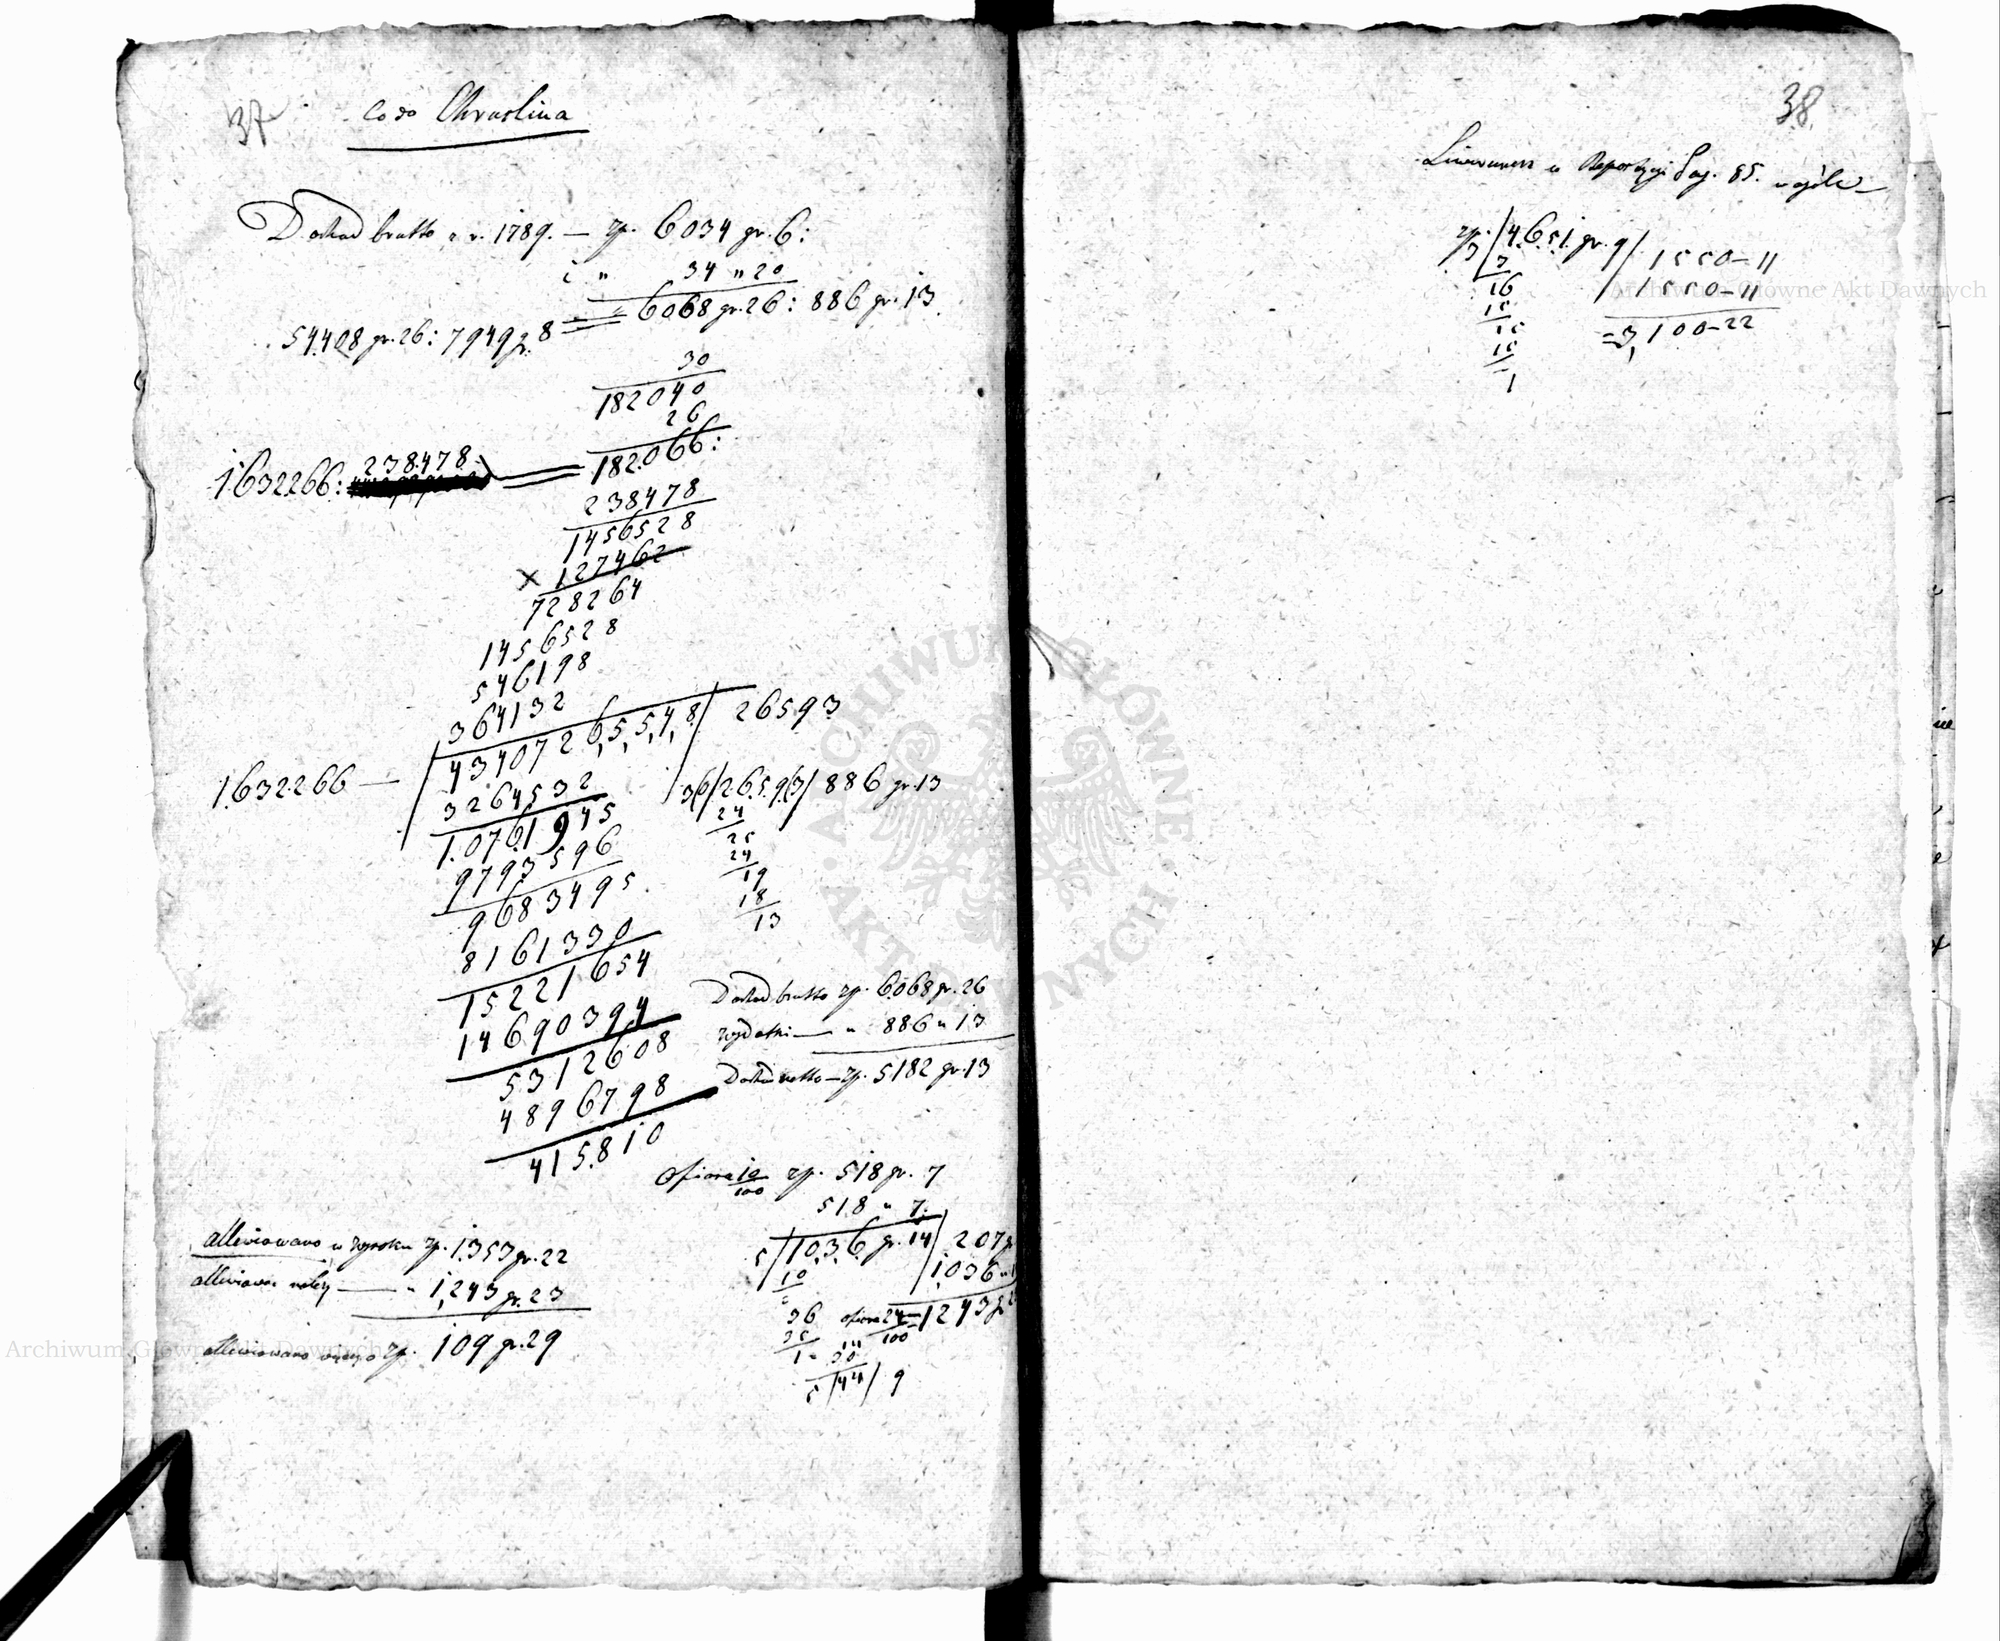 37
Co do Chruslina
Dochod brutto z r. 1789. — zp. 6034 gr. 6:
i " 34 " 20
54408 gr. 26: 7949 gr. 8 = 6068 gr. 26: 886 gr. 13
30
182040
26
1632266: 238478 = 182066:
238478
1456528
x 127462
728264
1456528
546198
364132
1632266 — / 43407265548 / 26593
3264532
10761945
9793596
9683495
8161330
15221654
14690394
5312608
4896798
415810
3(0/2659(3/ 886 gr. 13
24
25
24
19
18
13
Dochod brutto zp. 6068 gr. 26
wydatki — " 886 " 13
Dochod netto — zp. 5182 gr. 13
ofiara 10/100 zp. 518 gr. 7
518 " 7:
5 / 1036 gr. 14 / 207 g
10
1036 "
36 ofiara 24/100 = 1243 g
35
1 "
30
14
5 / 44 / 9
alleviowano w wyroku zp. 1353 gr. 22
alleviować należy — " 1,243 gr. 23
alleviowano więcej o zp. 109 gr. 29
38
w Repartycyi Pag. 85. w ogóle —
zp. / 4651. gr. 9 / 1550 — 11
3 3
16 1550 — 11
15
15 = 3,100 — 22
15
1
ARCHIWUM GŁÓWNE · AKT DAWNYCH ·
Archiwum Główne Akt Dawnych
Archiwum Główne Akt Dawnych